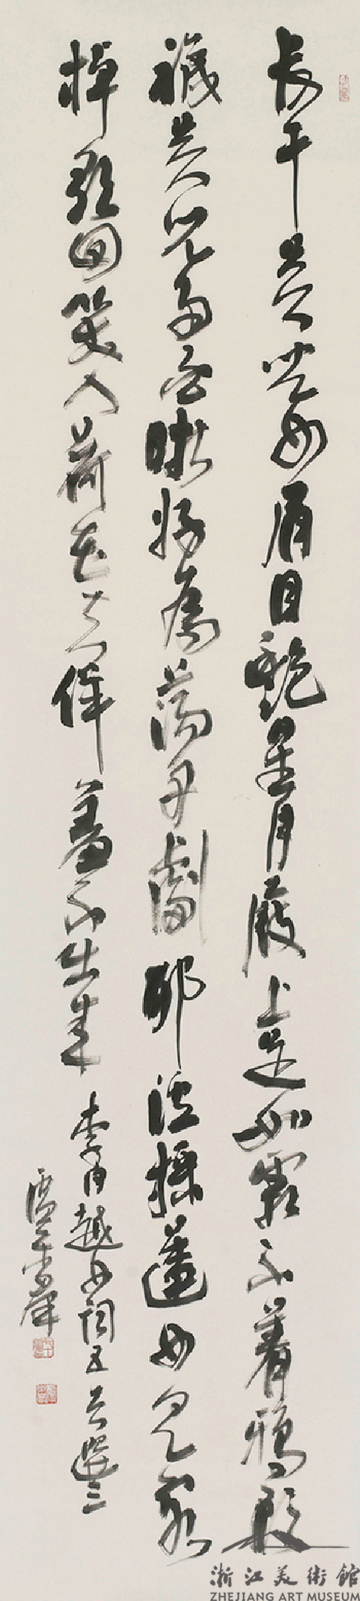 長干吴兒女眉目艷星月屐上足如霜不着鴉頭
襪吴兒多白晰好為蕩舟劇耶溪採蓮女見客
棹歌回笑入荷花去佯羞不出来 李白越女詞五首選三
盧樂群
浙江美術館
ZHEJIANG ART MUSEUM